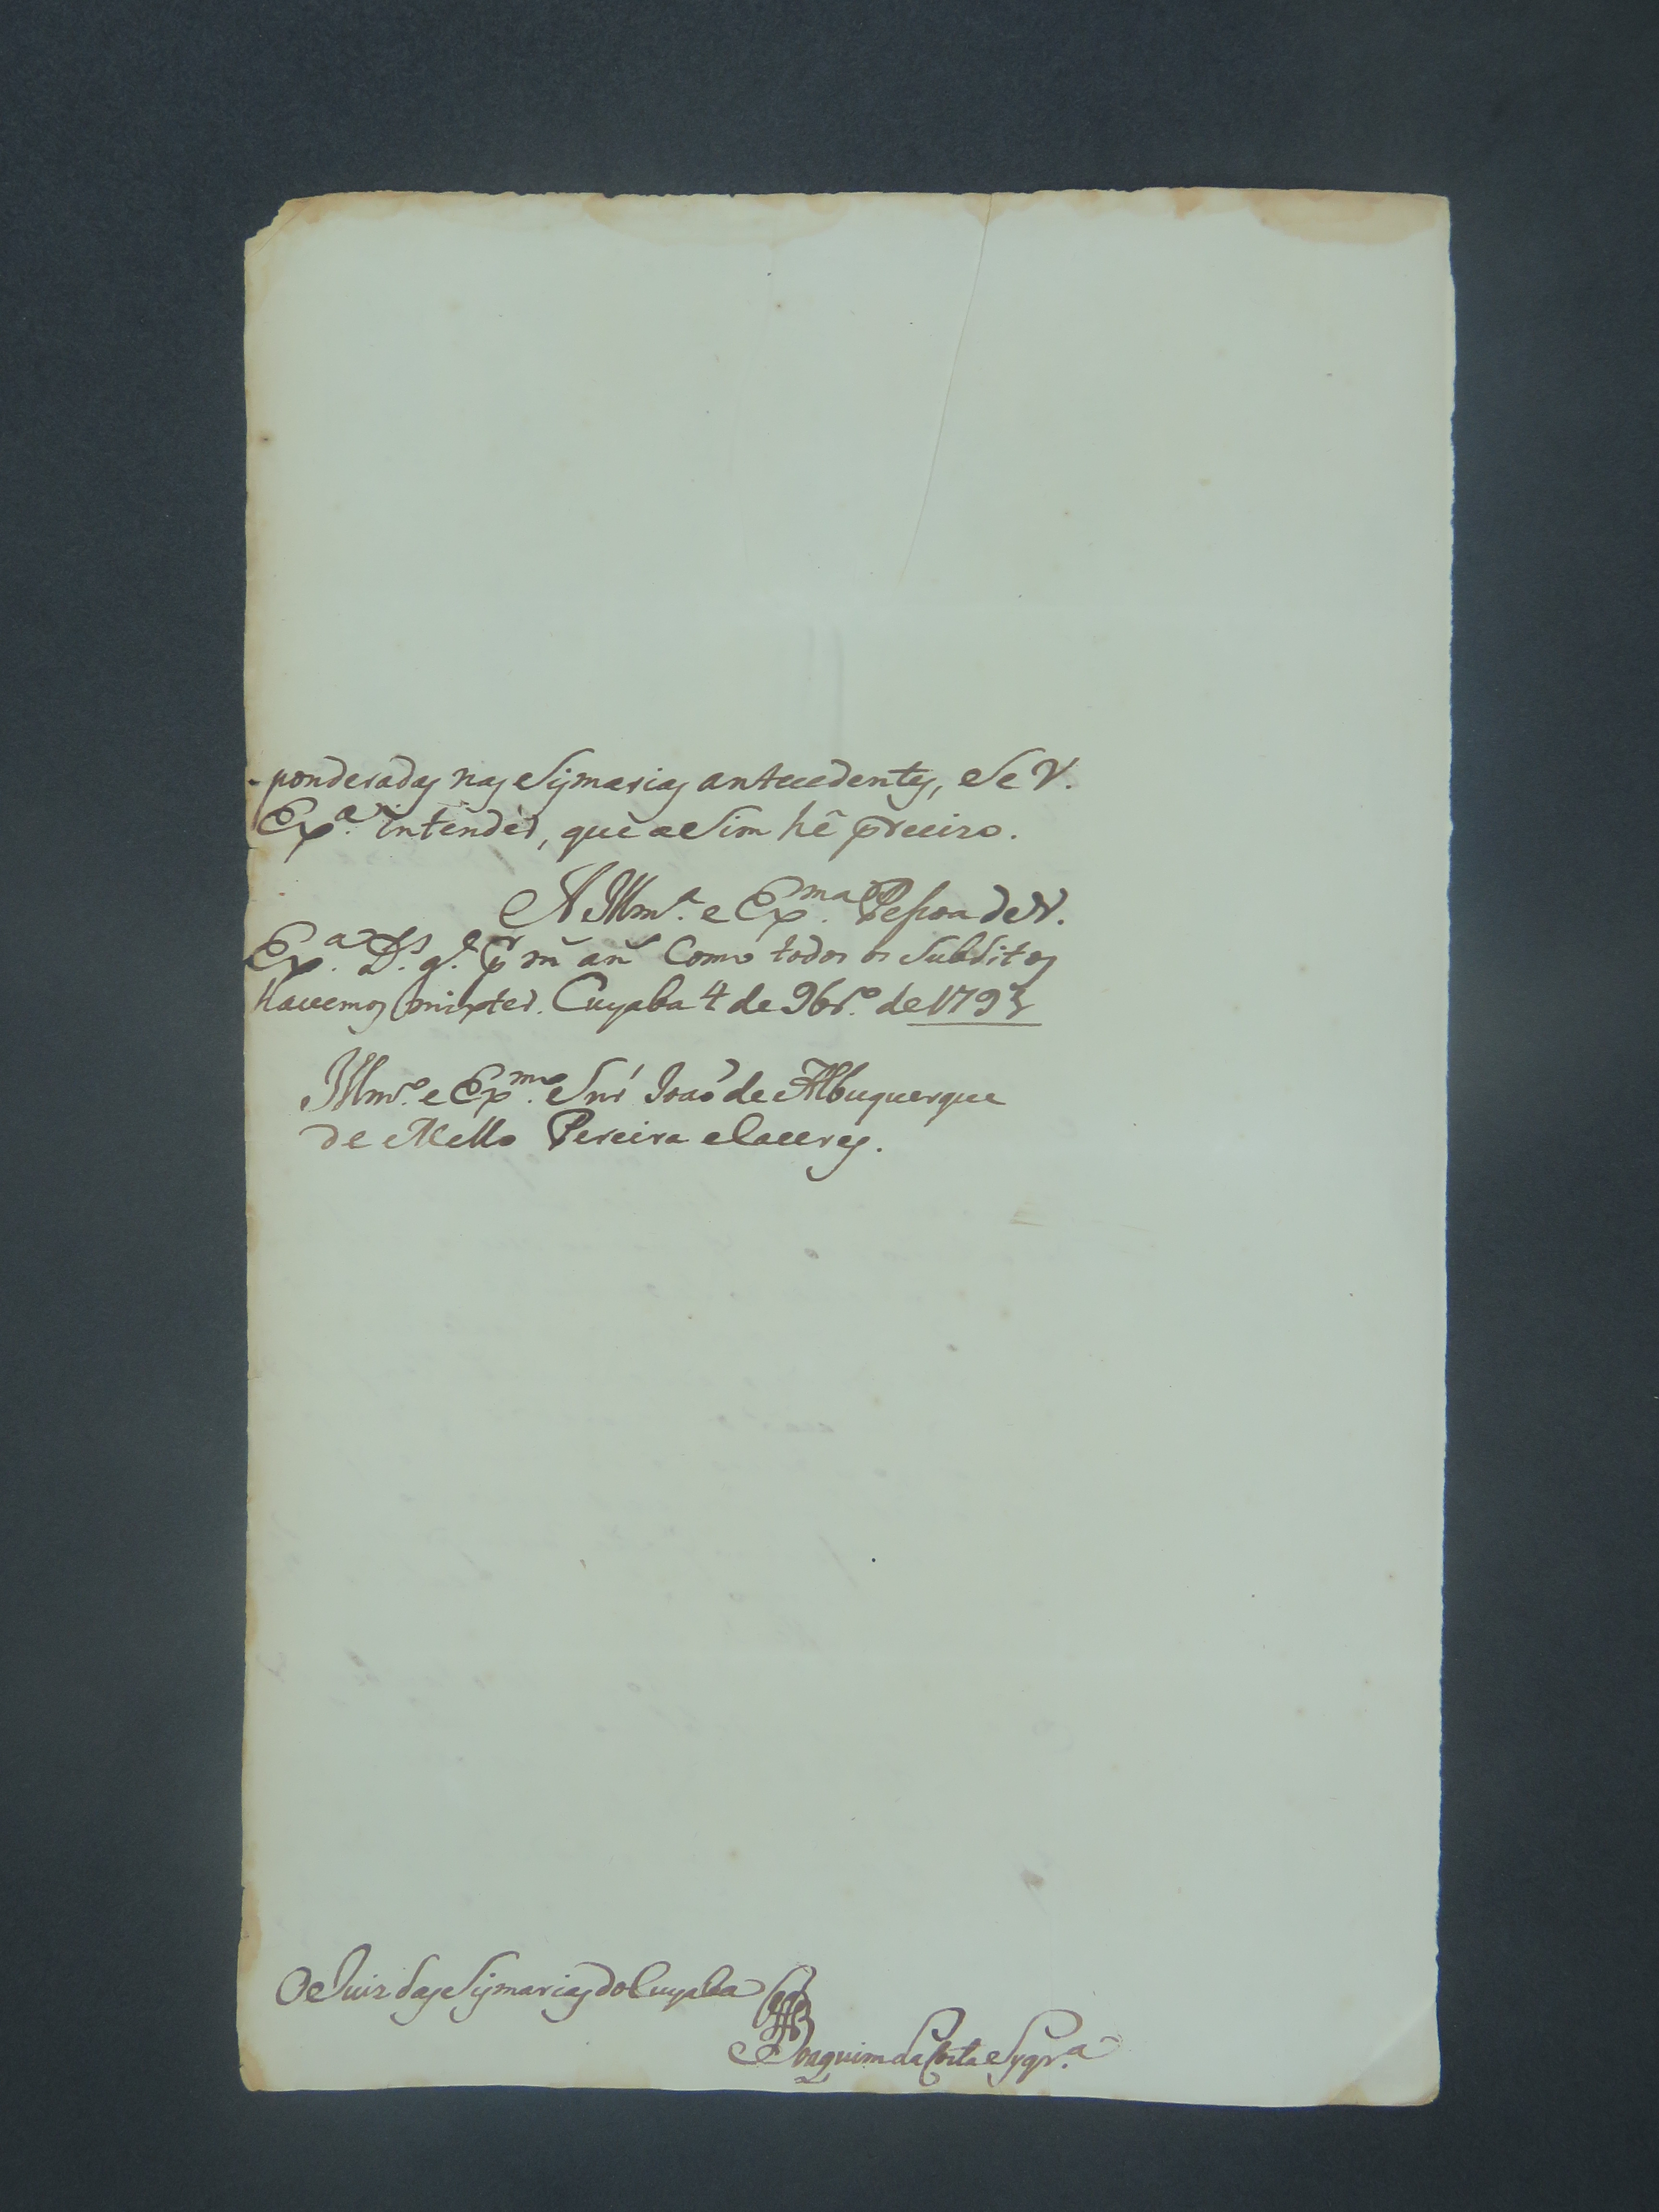 -ponderadas nas Sismarias antecedentes, Se V.
Exª. intender, que aSim hé precizo.
A Illmª. e Exmª. Pessoa de V.
Exª. Dˢ. gᵉ. pʳ m̃ añ Como todos os Subditos
Havemos mister. Cuyaba 4 de 9brº. de 1793
Illmº. e Exmº. Snŕ Joaõ de Albuquerque
de Mello Pereira e Caceres.
O Juiz das Sismarias do Cuyaba
Joaquim da Costa Syqrª.